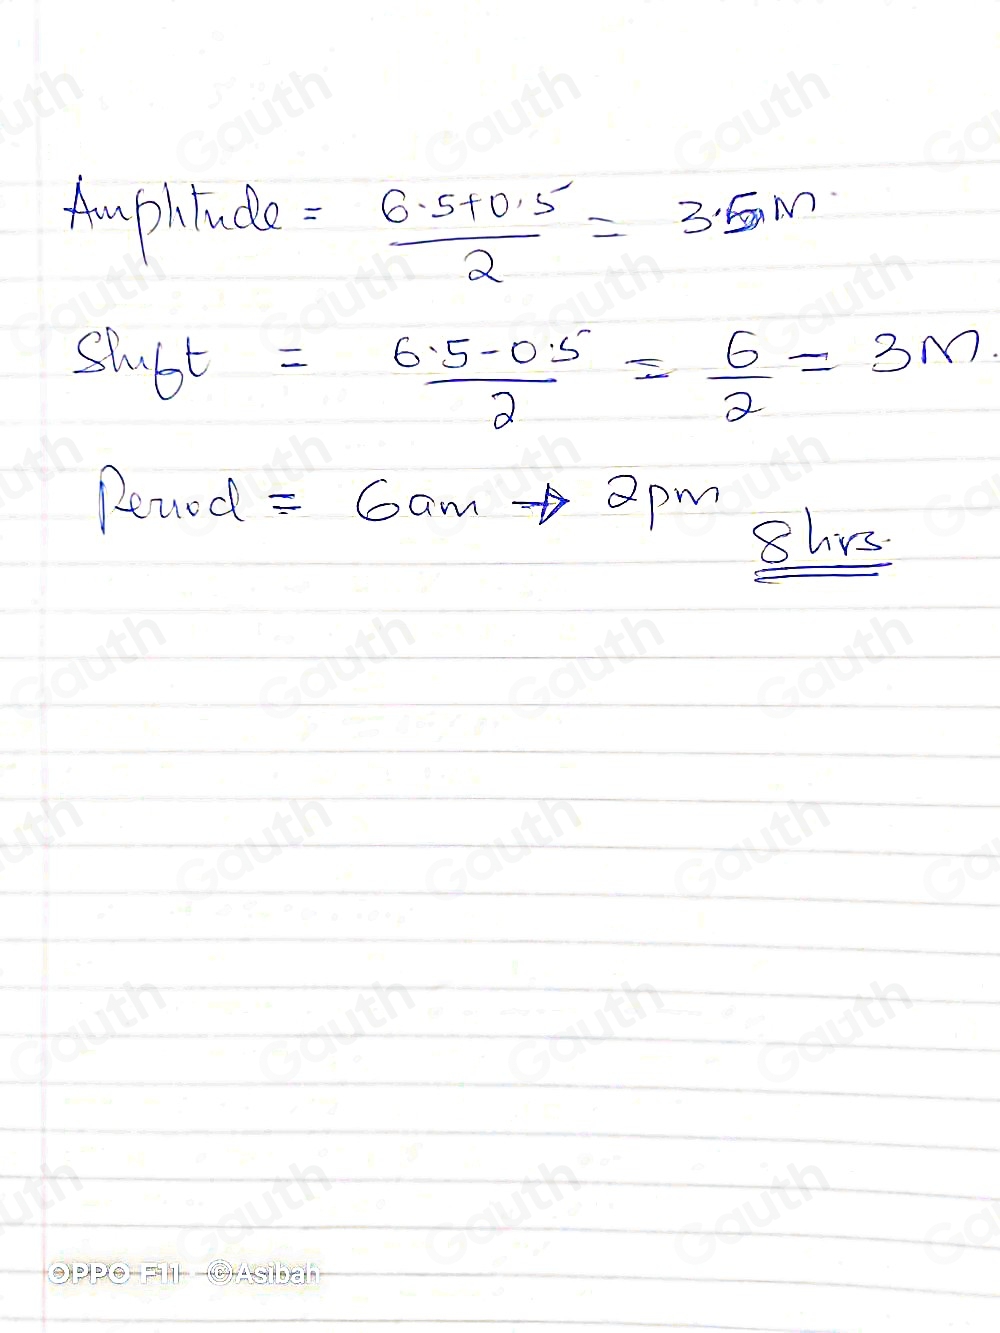 Amplitude = 6.5+0.5 / 2 = 3.5 M.
Shift = 6.5-0.5 / 2 = 6 / 2 = 3 M.
Period = 6am → 2pm
8 hrs.
OPPO F11 · ©Asibah